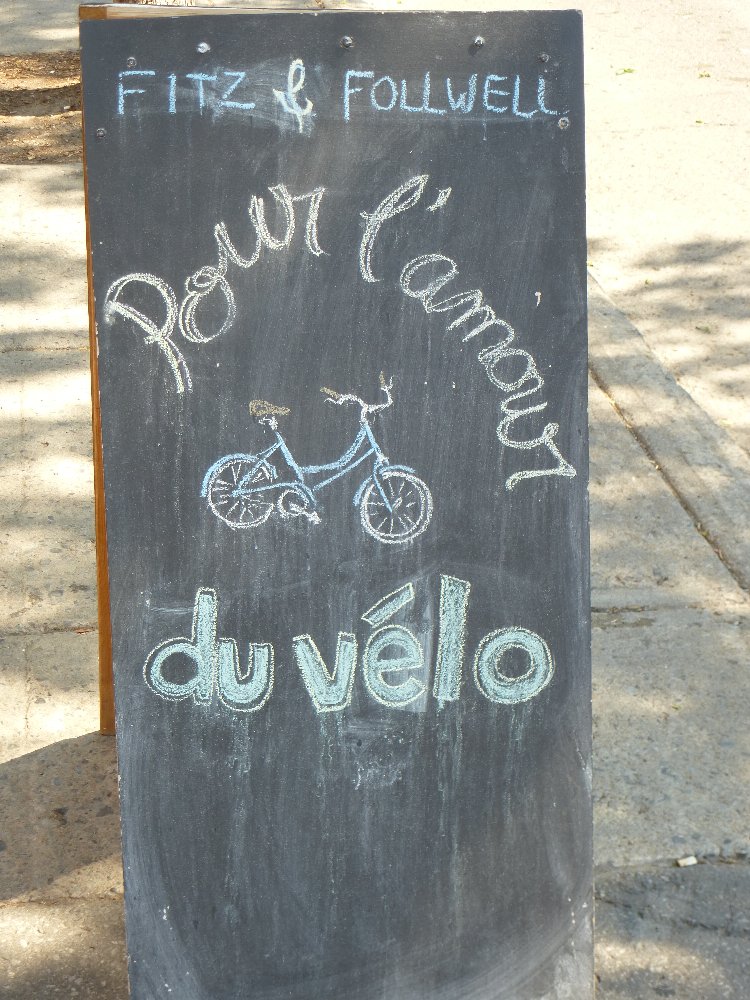 FITZ & FOLLWELL
Pour l'amour
du vélo